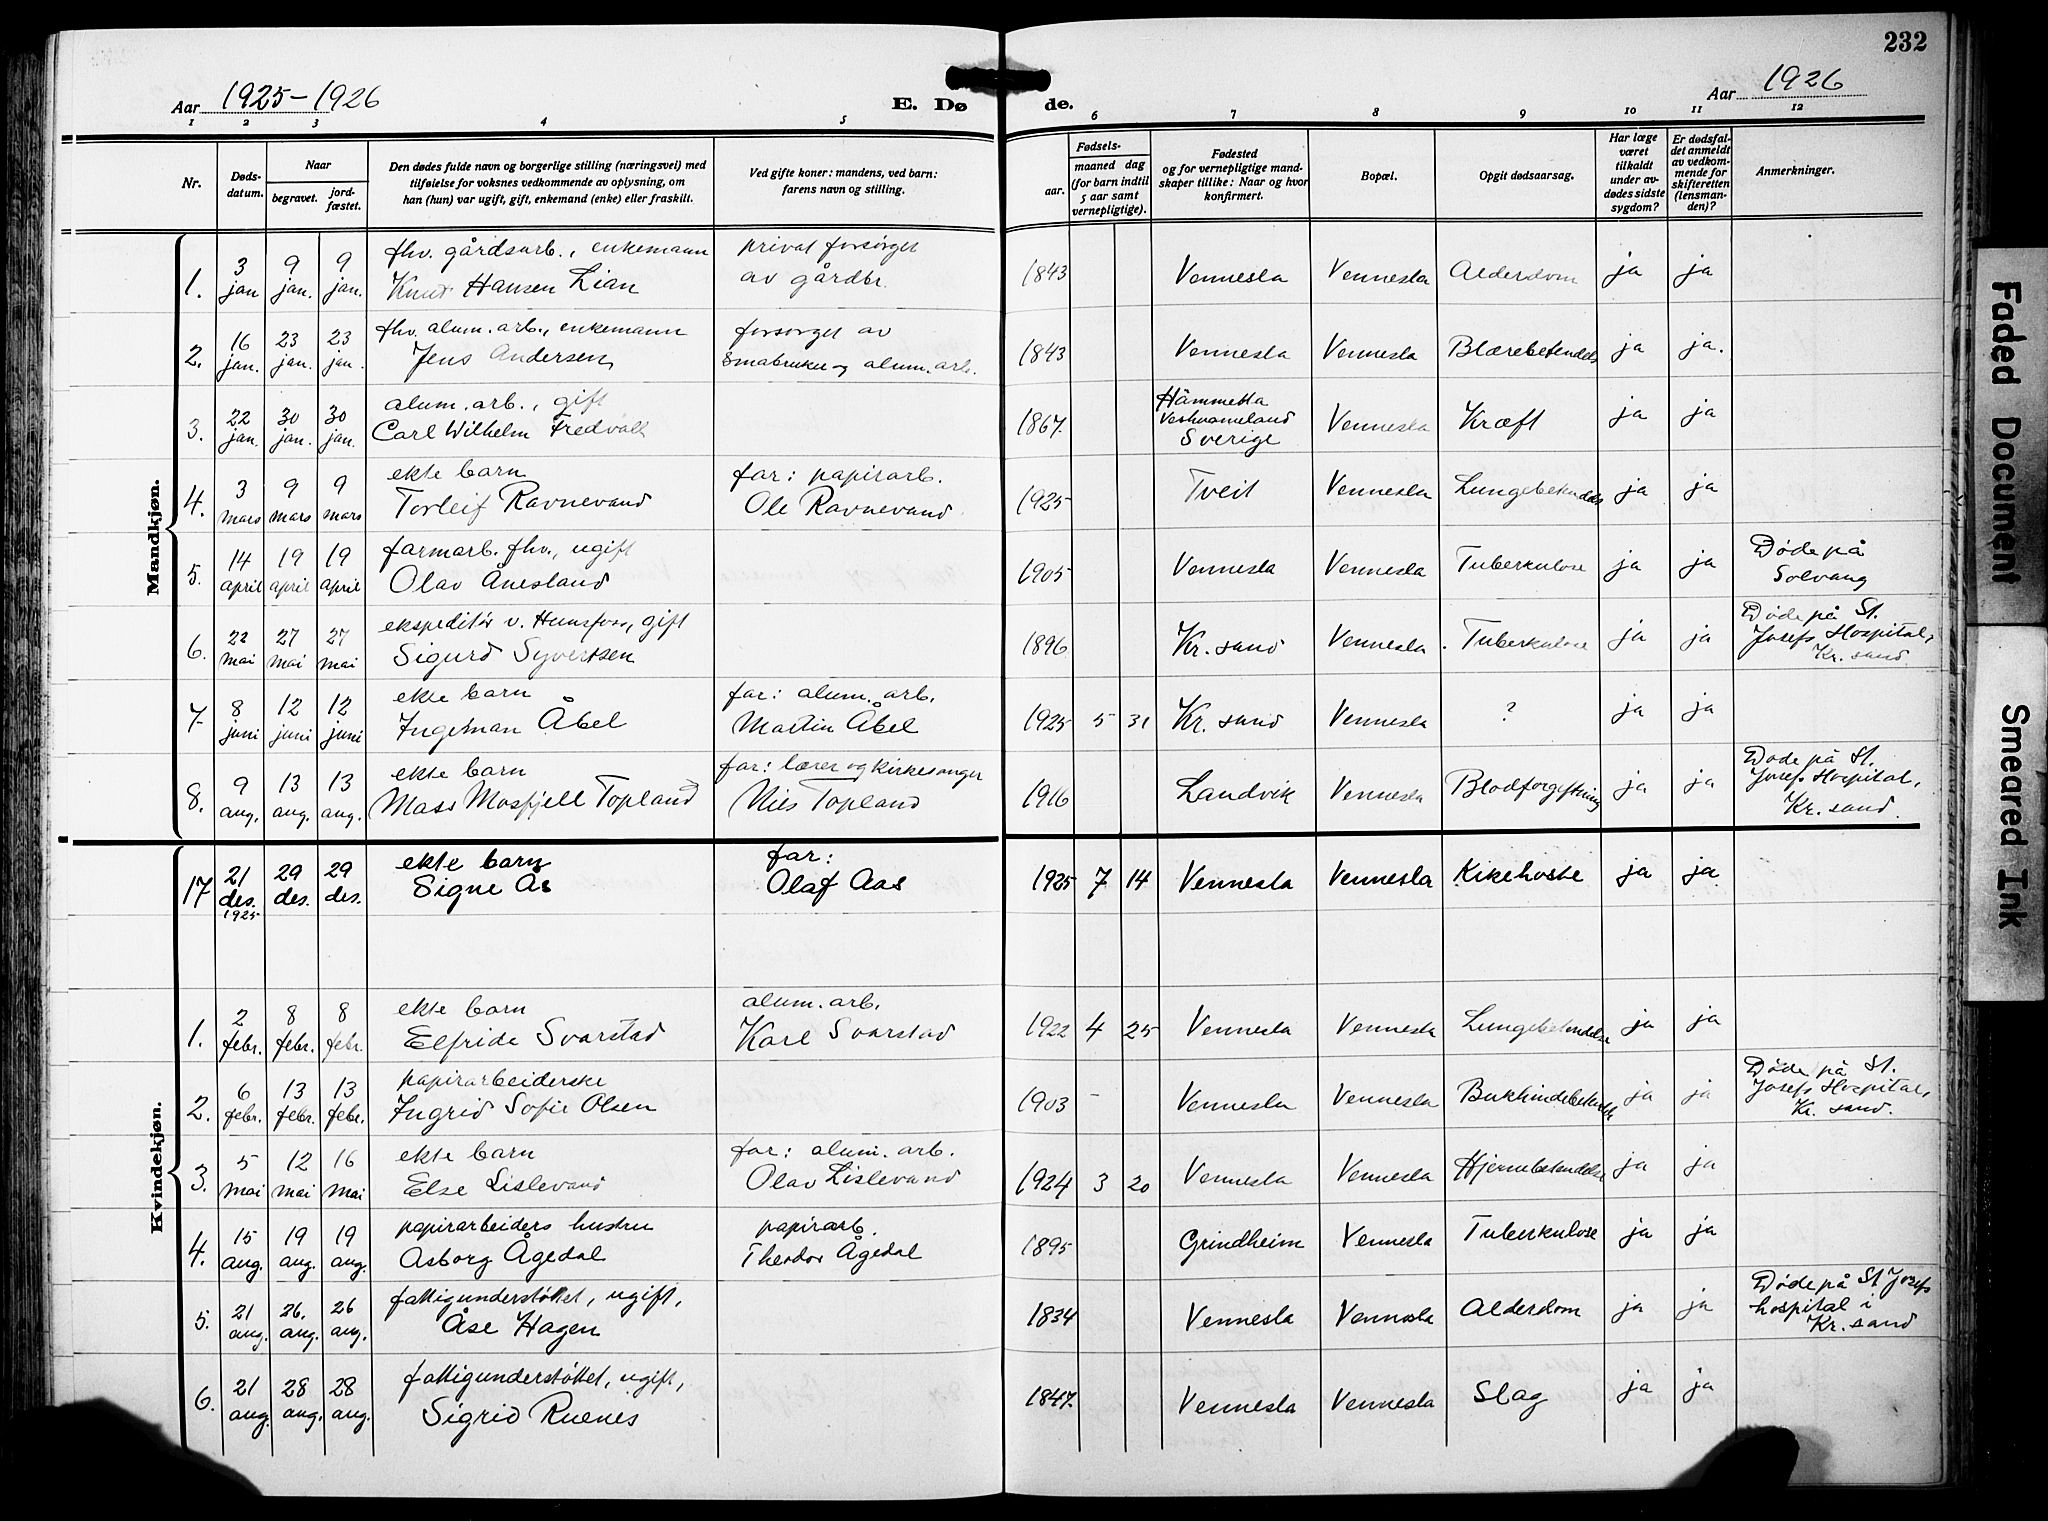 232
Aar 1925-1926
E. Dø
de.
Aar 1926
1 2 3 4 5 6 7 8 9 10 11 12
Nr.
Døds-
datum.
Naar
begravet.
jord-
fæstet.
Den dødes fulde navn og borgerlige stilling (næringsvei) med
tilføielse for voksnes vedkommende av oplysning, om
han (hun) var ugift, gift, enkemand (enke) eller fraskilt.
Ved gifte koner: mandens, ved barn:
farens navn og stilling.
Fødsels-
aar.
maaned dag
(for barn indtil
5 aar samt
vernepligtige).
Fødested
og for vernepligtige mand-
skaper tillike: Naar og hvor
konfirmert.
Bopæl.
Opgit dødsaarsag.
Har læge
været
tilkaldt
under av-
dødes sidste
sygdom?
Er dødsfal-
det anmeldt
av vedkom-
mende for
skifteretten
(lensman-
den)?
Anmerkninger.
Mandkjøn.
1. 3 jan 9 jan. 9 jan. fhv. gårdsarb., enkemann
Knut Hansen Lian
privat forsørget
av gårdbr.
1843 Vennesla Vennesla Alderdom ja ja
2. 16 jan. 23 jan. 23 jan. fhv. alum. arb., enkemann
Jens Andersen
forsørget av
Småbruker og alum. arb.
1843 Vennesla Vennesla Blærebetendels ja ja.
3. 22 jan. 30 jan. 30 jan. alum. arb., gift
Carl Wilhelm Fredvall
1867. Sverige Vennesla Kræft ja ja
4. 3 mars 9 mars 9 mars ekte barn
Torleif Ravnevand
far: papirarb.
Ole Ravnevand
1925 Tveit Vennesla Lungebetendels ja ja
5. 14 april 19 april 19 april farmarb. fhv., ugift
Olav Ånesland
1905 Vennesla Vennesla Tuberkulose ja ja
Døde på
Solvang
6. 22 mai 27 mai 27 mai ekspeditør v. Hunsfoss, gift
Sigurd Syvertsen
1896 Kr. sand Vennesla Tuberkulose ja ja
Døde på St.
Josefs Hospital,
Kr. sand
7 8 juni 12 juni 12 juni ekte barn
Ingelman Åbel
far: alum. arb.
Martin Åbel
1925 5 31 Kr. sand Vennesla ? ja ja
8. 9 aug. 13 aug. 13 aug. ekte barn
Mass Mosfjell Topland
far: lærer og kirkesanger
Nils Topland
1916 Landvik Vennesla Blodforgiftning ja ja
Døde på St.
Josefs Hospital,
Kr. sand.
Kvindekjøn.
17 21 des. 1925 29 des. 29 des. ekte barn
Signe Ås
far:
Olaf Aas
1925 7 14 Vennesla Vennesla Kikehoste ja ja
1. 2 febr. 8 febr. 8 febr. ekte barn
Elfride Svarstad
alum. arb.
Karl Svarstad
1922 4 25 Vennesla Vennesla Lungebetendelse ja ja
2. 6 febr. 13 febr. 13 febr. papirarbeiderske
Ingrid Sofie Olsen
1903 - Vennesla Vennesla Bukhindebetendels ja ja
Døde på St.
Josefs Hospital,
Kr. sand.
3. 5 mai 12 mai 16 mai ekte barn
Else Lislevand
far: alum. arb.
Olav Lislevand
1924 3 20 Vennesla Vennesla Hjernebetendelse ja ja
4. 15 aug. 19 aug. 19 aug. papirarbeiders hustru
Asborg Ågedal
papirarb.
Theodor Ågedal
1895 Grindheim Vennesla Tuberkulose ja ja
5. 21 aug. 26. aug. 26 aug. fattigunderstøttet, ugift,
Åse Hagen
1834 Vennesla Vennesla Alderdom ja ja
Døde på St Josefs
hospital i
Kr. sand
6. 21 aug. 28 aug. 28 aug. fattigunderstøttet, ugift,
Sigrid Ruenes
1847. Vennesla Vennesla Slag ja ja
Faded Document
Smeared Ink